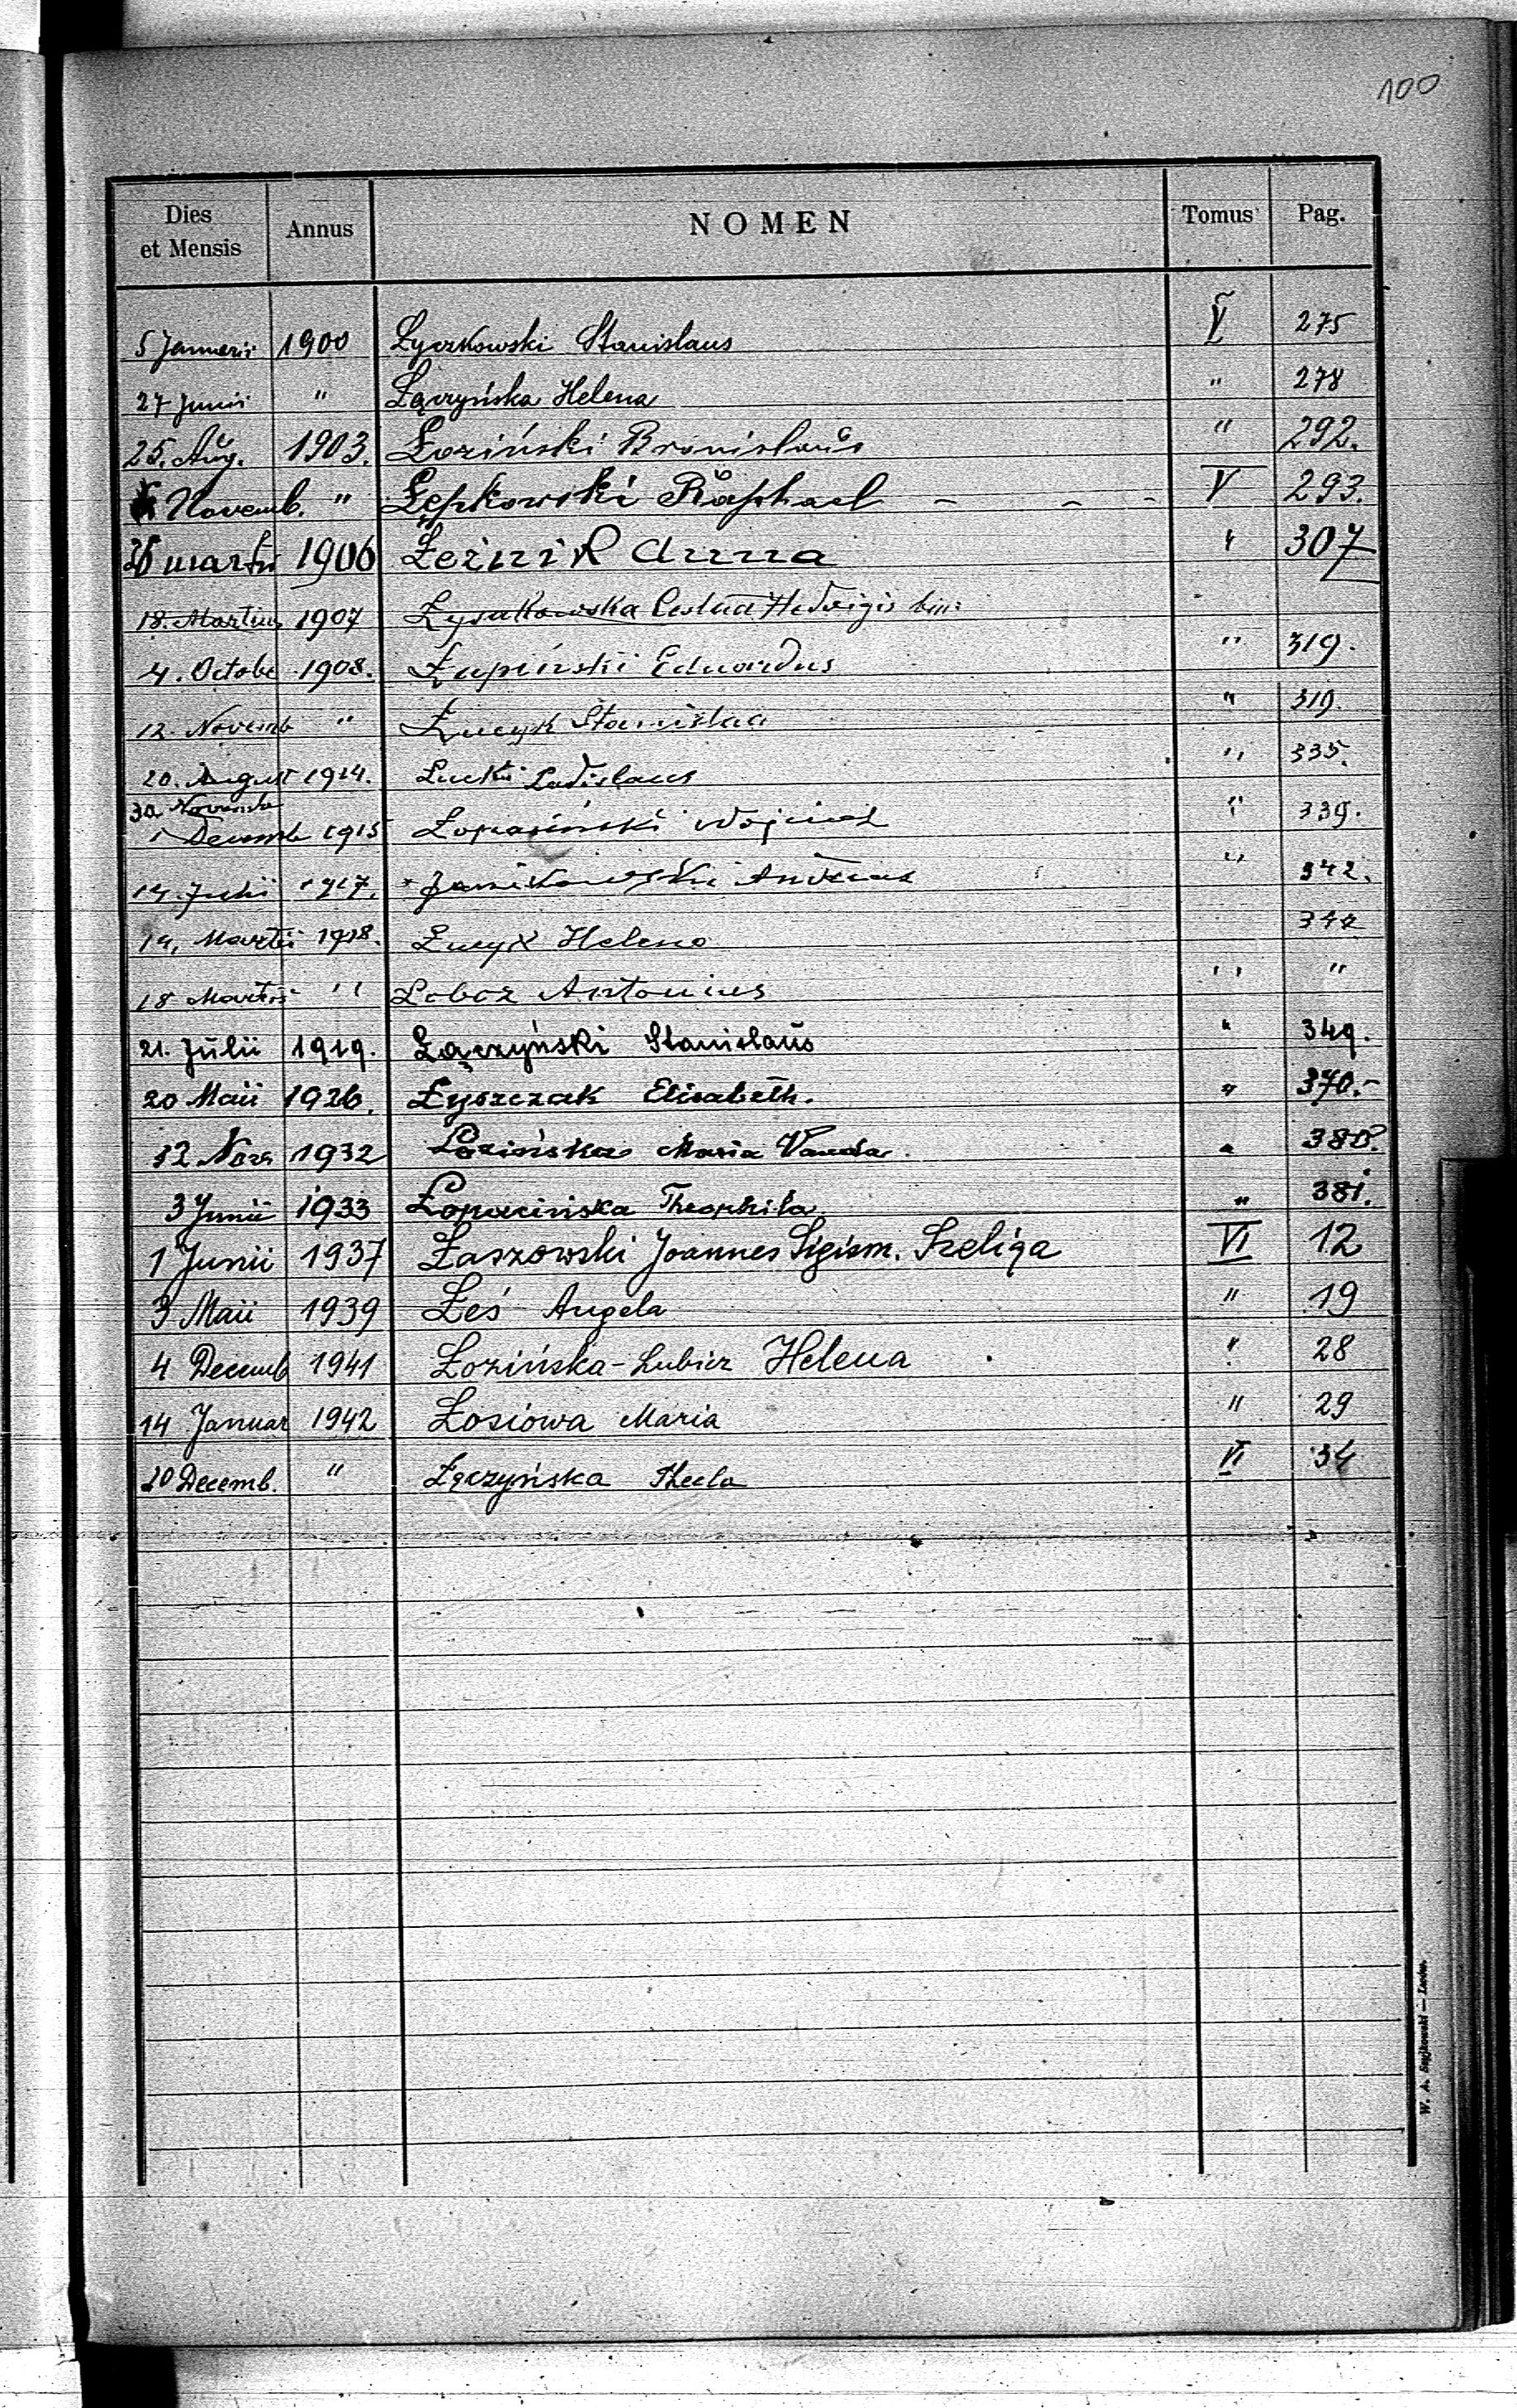 100
Dies et Mensis Annus NOMEN Tomus Pag.
5 Januarii 1900 Łyczkowski Stanislaus V 275
27 Junii " Łączyńska Helena " 278
25. Aug. 1903. Łoziński Bronislaus " 292.
Novemb. " Łepkowski Raphael - - - V 293.
26 martii 1906 Łeźnik Anna " 307
18. Martius 1907 Łysakowska Hedvigis
4. Octobr 1908. Łupiński Eduardus " 319.
12. Novemb " Łucyk Stanislaa " 319.
20. August 1914. Łucki Ladislaus " 335.
30 Novemb
1 Decemb 1915 Łopaciński " 339.
14. Julii 1917. Andreas " 342.
19. Martii 1918. Łucyk Helena 342
18 Martii " Łoboz Antonius " "
21. Julii 1919. Łączyński Stanislaus " 349.
20 Maii 1926. Łyszczak Elisabeth. " 370.-
12 Nov 1932 Łozińska Maria Vanda. " 380.
3 Junii 1933 Łopacińska Theophila " 381.
1 Junii 1937 Łaszowski Joannes Sigism. Szeliga VI 12
3 Maii 1939 Łeś Angela " 19
4 Decemb 1941 Łozińska-Lubicz Helena " 28
14 Januar 1942 Łosiowa Maria " 29
20 Decemb. " Łączyńska Thecla VI 34